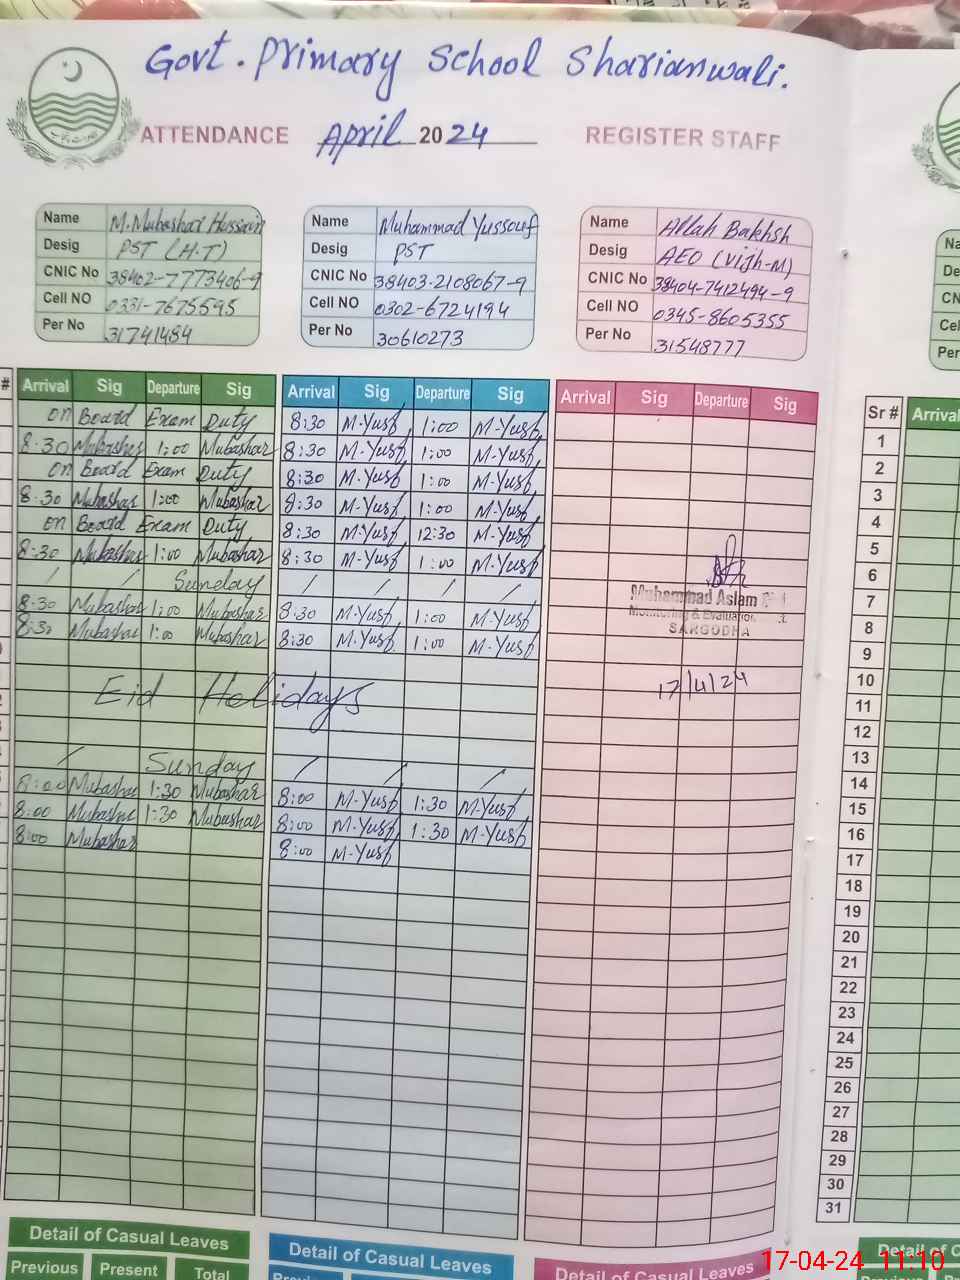 Govt. Primary School Sharianwali.
ATTENDANCE April 2024 REGISTER STAFF
Name M. Mubashar Hussain
Desig PST (H.T)
CNIC No 38402-7773406-9
Cell NO 0331-7675595
Per No 31741484
Name Muhammad Yussouf
Desig PST
CNIC No 38403-2108067-9
Cell NO 0302-6724194
Per No 30610273
Name Allah Bakhsh
Desig AEO (Vijh-M)
CNIC No 38404-7412494-9
Cell NO 0345-8605355
Per No 31548777
# Arrival Sig Departure Sig Arrival Sig Departure Sig Arrival Sig Departure Sig Sr # Arrival
on Board Exam Duty 8:30 M-Yusf 1:00 M-Yusf 1
8:30 Mubashar 1:00 Mubashar 8:30 M-Yusf 1:00 M-Yusf 2
on Board Exam Duty 8:30 M-Yusf 1:00 M-Yusf 3
8:30 Mubashar 1:00 Mubashar 8:30 M-Yusf 1:00 M-Yusf 4
on Board Exam Duty 8:30 M-Yusf 12:30 M-Yusf 5
8:30 Mubashar 1:00 Mubashar 8:30 M-Yusf 1:00 M-Yusf 6
/ / Sunday / / / / 7
8:30 Mubashar 1:00 Mubashar 8:30 M-Yusf 1:00 M-Yusf 8
8:30 Mubashar 1:00 Mubashar 8:30 M-Yusf 1:00 M-Yusf 9
Muhammad Aslam
Monitoring & Evaluation
SARGODHA
17/4/24
10
Eid Holidays 11
12
13
/ Sunday / / / 14
8:00 Mubashar 1:30 Mubashar 8:00 M-Yusf 1:30 M-Yusf 15
8:00 Mubashar 1:30 Mubashar 8:00 M-Yusf 1:30 M-Yusf 16
8:00 Mubashar 8:00 M-Yusf 17
18
19
20
21
22
23
24
25
26
27
28
29
30
31
Detail of Casual Leaves Detail of Casual Leaves Detail of Casual Leaves Detail of C
Previous Present Total
17-04-24 11:10